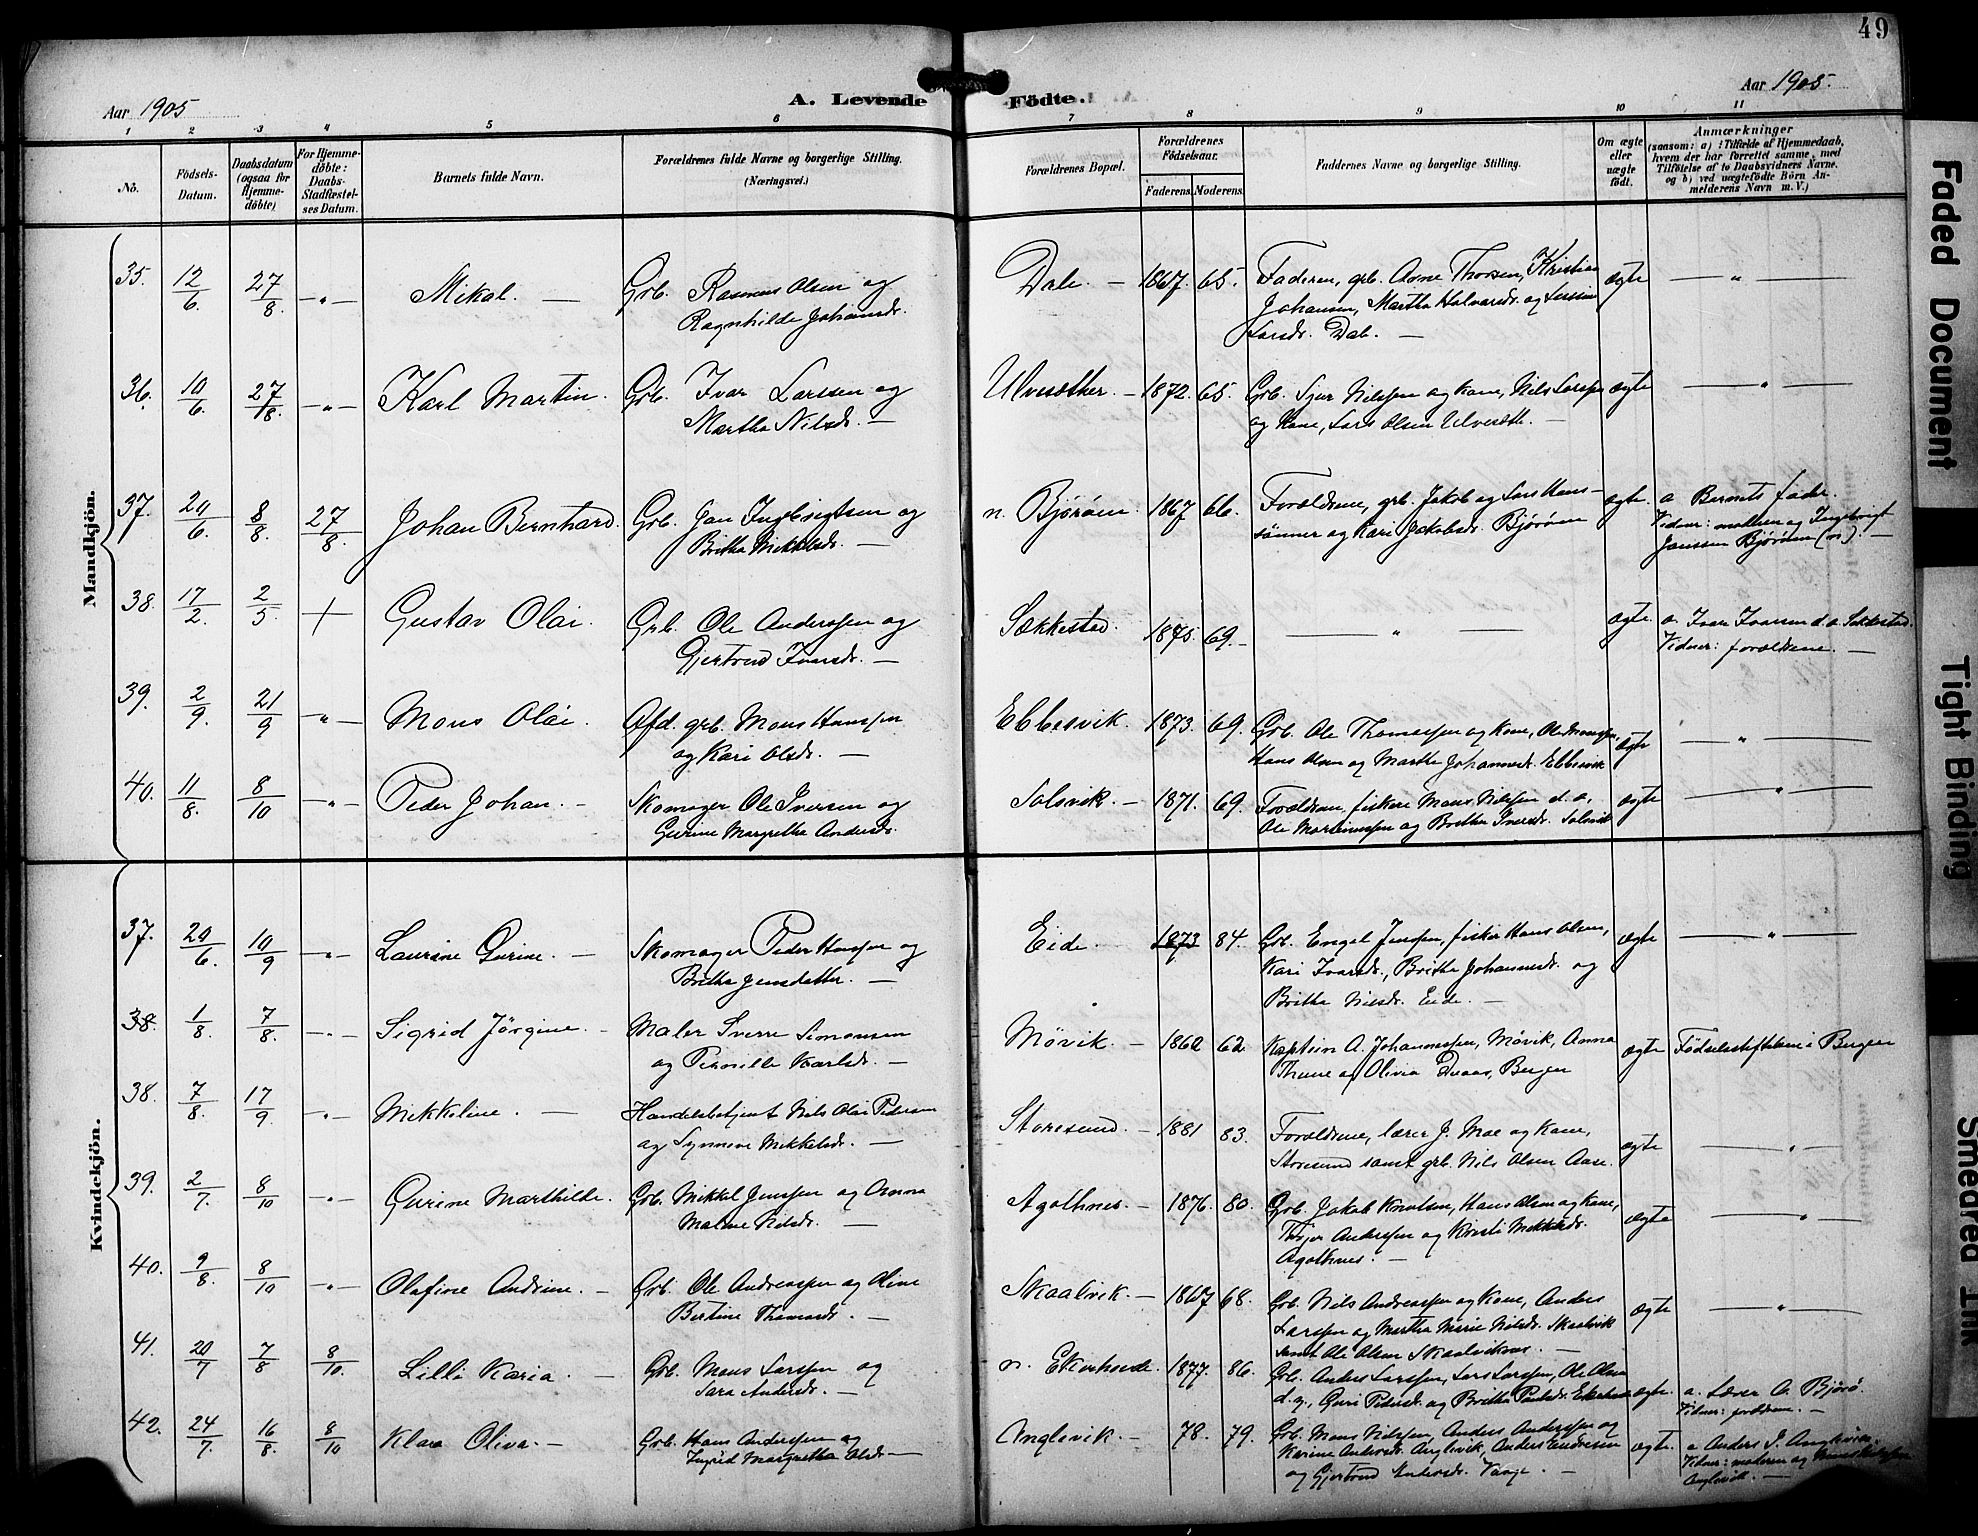 49
Aar 1905
A. Levende
Födte.
Aar 1905.
1 2 3 4 5 6 7 8 9 10 11
No.
Födsels-
Datum.
Daabsdatum
(ogsaa for
Hjemme-
döbte)
For Hjemme-
döbte:
Daabs-
Stadfæstel-
ses Datum.
Barnets fulde Navn.
Forældrenes fulde Navne og borgerlige Stilling.
(Næringsvei.)
Forældrenes Bopæl.
Forældrenes
Födselsaar.
Faderens. Moderens.
Faddernes Navne og borgerlige Stilling.
Om ægte
eller
uægte
födt.
Anmærkninger
(saasom: a) i Tilfælde af Hjemmedaab,
hvem der har forrettet samme, med
Tilföielse af to Daabsvidners Navne.
og b) ved uægtefödte Börn An-
melderens Navn m. V.)
Mandkjön.
35. 12/6 27/8 -"- Mikal. — Grb. Rasmus Olsen og
Ragnhilde Johannsdr.
Dale. — 1867. 65. Faderen, grb. Arne Thorsen, Kristian
Johansen, Martha Halvarsdr. og
Larsdr. Dale. —
ægte — " —
36. 10/6 27/8. -"- Karl Martin. Grb. Ivar Larssen og
Martha Nilsdr. —
Ulvesæther. — 1872. 65. Grb. Sjur Nilssen og kone, Nils Larssen
og Kone, Lars Olsen Ulvesæth. —
ægte — " —
37. 20/6. 8/8 27/8. Johan Bernhard. Grb. Jan Ingebrigtsen og
Britha Mikkelsdr. —
n. Bjørøen. 1867 66. Forældrene, grb. Jakob og Lars Hans-
sønner og Kari Jakobsdr. Bjørøen
ægte. a Barnets fader.
Vidner: moderen og Ingebrigt
Janssen Bjørøen (n). —
38. 17/2. 2/5 + Gustav Olai. Grb. Ole Anderssen og
Gjertrud Ivarsdr. —
Sækkestad. 1875. 69. — " —
ægte. a. Ivar Ivarsen d. a. Sekkestad.
Vidner: forældrene. —
39. 2/9. 21/9 -"- Mons Olai. Afd. grb. Mons Hanssen
og Kari Olsdr. —
Ebbesvik. 1873. 69. Grb. Ole Thomassen og kone,
Hans Olsen og Martha Johannesdr. Ebbesvik
ægte — " —
40. 11/8. 8/10 -"- Peder Johan. — Skomager Ole Iversen og
Gurine Margretha Andersdr.
Solsvik. — 1871. 69. Forældrene, fisker Mons Nilssen d. a.,
Ole Martinussen og Britha Iversdr. Solsvik
ægte — " —
Kvindekjön.
37. 20/6 10/9 -"- Laurine Gurine. — Skomager Peder Hanssen og
Britha Jensdatter. —
Eide. 1873 84. Grb. Engel Jenssen, fisker Hans Olsen,
Kari Ivarsdr., Britha Johannesdr. og
Britha Nilsdr. Eide. —
ægte — " —
38. 1/8. 7/8. -"- Sigrid Jørgine. — Maler Sverre Simonsen
og Pernille Karlsdr. —
Møvik. — 1862 62 Kaptein A. Johannessen, Møvik, Anna
Thune og Olivia Duaas, Bergen
ægte Fødselsstiftelsen i Bergen
38. 7/8. 17/9. -"- Mikkeline. — Handelsbetjent Nils Olai Pedersen
og Synneve Mikkelsdr. —
Storesund. — 1881 83. Forældrene, lærer J. Moe og kone,
Storesund samt grb. Nils Olsen Aase.
ægte — " —
39. 2/7. 8/10 -"- Gurine Marthilde. Grb. Mikkel Jenssen og Anna
Malene Nilsdr. —
Agothnes. — 1876. 80. Grb. Jakob Knutsen, Hans Olsen og kone,
Anderssen og Kristi Mikkelsdr.
Agothnes. —
ægte — " —
40. 9/8. 8/10 -"- Olafine Andrine. — Grb. Ole Andreassen og Oline
Bertine Thomasdr. —
Skaalvik. — 1867 68. Grb. Nils Andreassen og Kone, Anders
Larssen og Martha Marie Nilsdr. Skaalvik
samt Ole Olsen Skaalviksnes. —
ægte — " —
41. 20/7 7/8 8/10. Lilli Karia. — Grb. Mons Larssen og
Sara Andersdr. —
n. Ekerhovde. 1877. 86. Grb. Anders Larssen, Lars Larssen, Ole Olsen
d. y., Guri Pedersdr. og Britha Paulsdr. Ekerhovde
ægte. a. Lærer A. Bjørø.
Vidner: forældrene. —
42. 24/7. 16/8. 8/10 Klara Oliva. — Grb. Hans Anderssen og
Ingrid Margretha Olsdr. —
Anglevik. — 78. 79. Grb. Mons Nilssen, Anders Anderssen og
Karine Andersdr. Anglevik, Anders Endresen
og Gjertrud Andersdr. Vaage. —
ægte. a Anders J. Anglevik.
Vidner: moderen og
Anglevik. —
Faded Document
Tight Binding
Smeared Ink